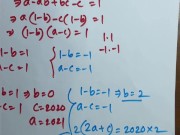 ⇒ a-ab+bc-c=1
⇒ a(1-b)-c(1-b)=1
⇒ (1-b)(a-c)=1
1·1
-1·-1
-b=1
-c=1
1-b=-1
a-c=-1
=1 ⇒ b=0
c=2020
a=2021
1-b=-1 ⇒ b=2
a-c=-1
2(2a+c)=2020×2